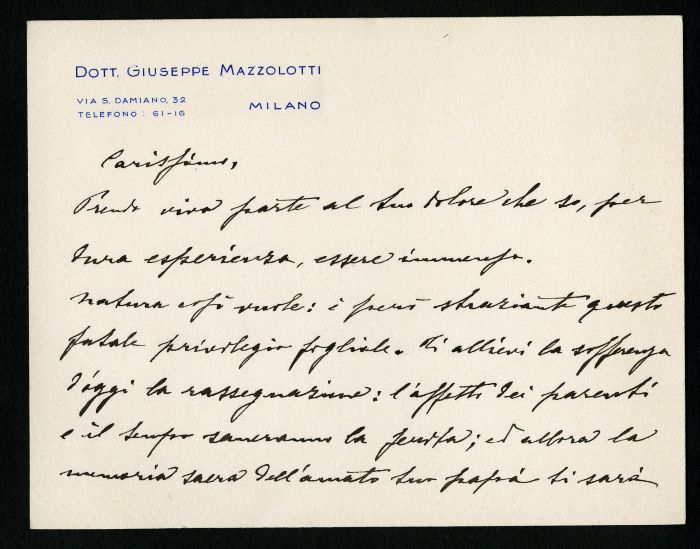 DOTT. GIUSEPPE MAZZOLOTTI
VIA S. DAMIANO, 32
TELEFONO: 61-16
MILANO
Carissimo,
Prendo viva parte al tuo dolore che so, per
dura esperienza, essere immenso.
Natura così vuole: è però straziante questo
fatale privilegio figliale. Ti allievi la sofferenza
d'oggi la rassegnazione: l'affetto dei parenti
e il tempo saneranno la ferita; ed allora la
memoria sacra dell'amato tuo papà ti sarà